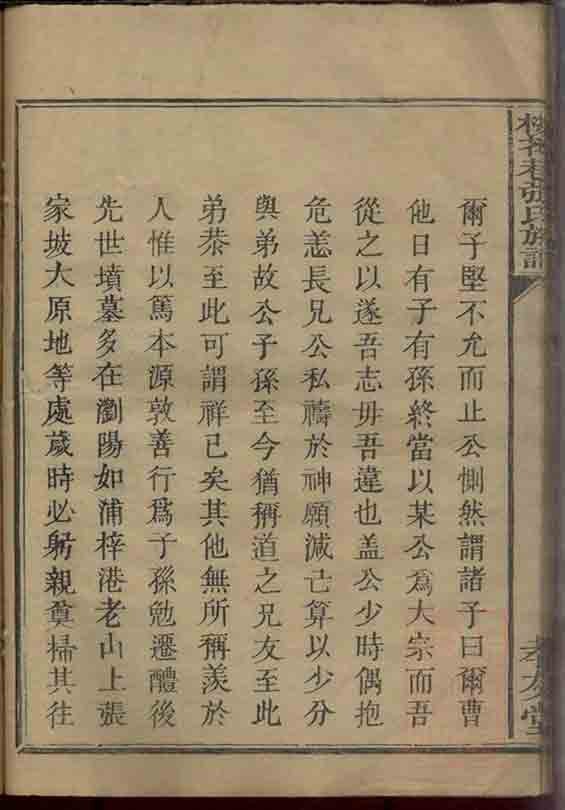 張氏族譜
爾子堅不允而止公惻然謂諸子曰爾曹
他日有子有孫終當以某公爲大宗而吾
從之以遂吾志毋吾違也盖公少時偶抱
危恙長兄公私禱於神願減己算以少分
與弟故公子孫至今猶稱道之兄友至此
弟恭至此可謂祥已矣其他無所稱羨於
人惟以篤本源敦善行爲子孫勉遷醴後
先世墳墓多在瀏陽如浦梓港老山上張
家坡大原地等處歲時必躬親奠掃其往
孝友堂